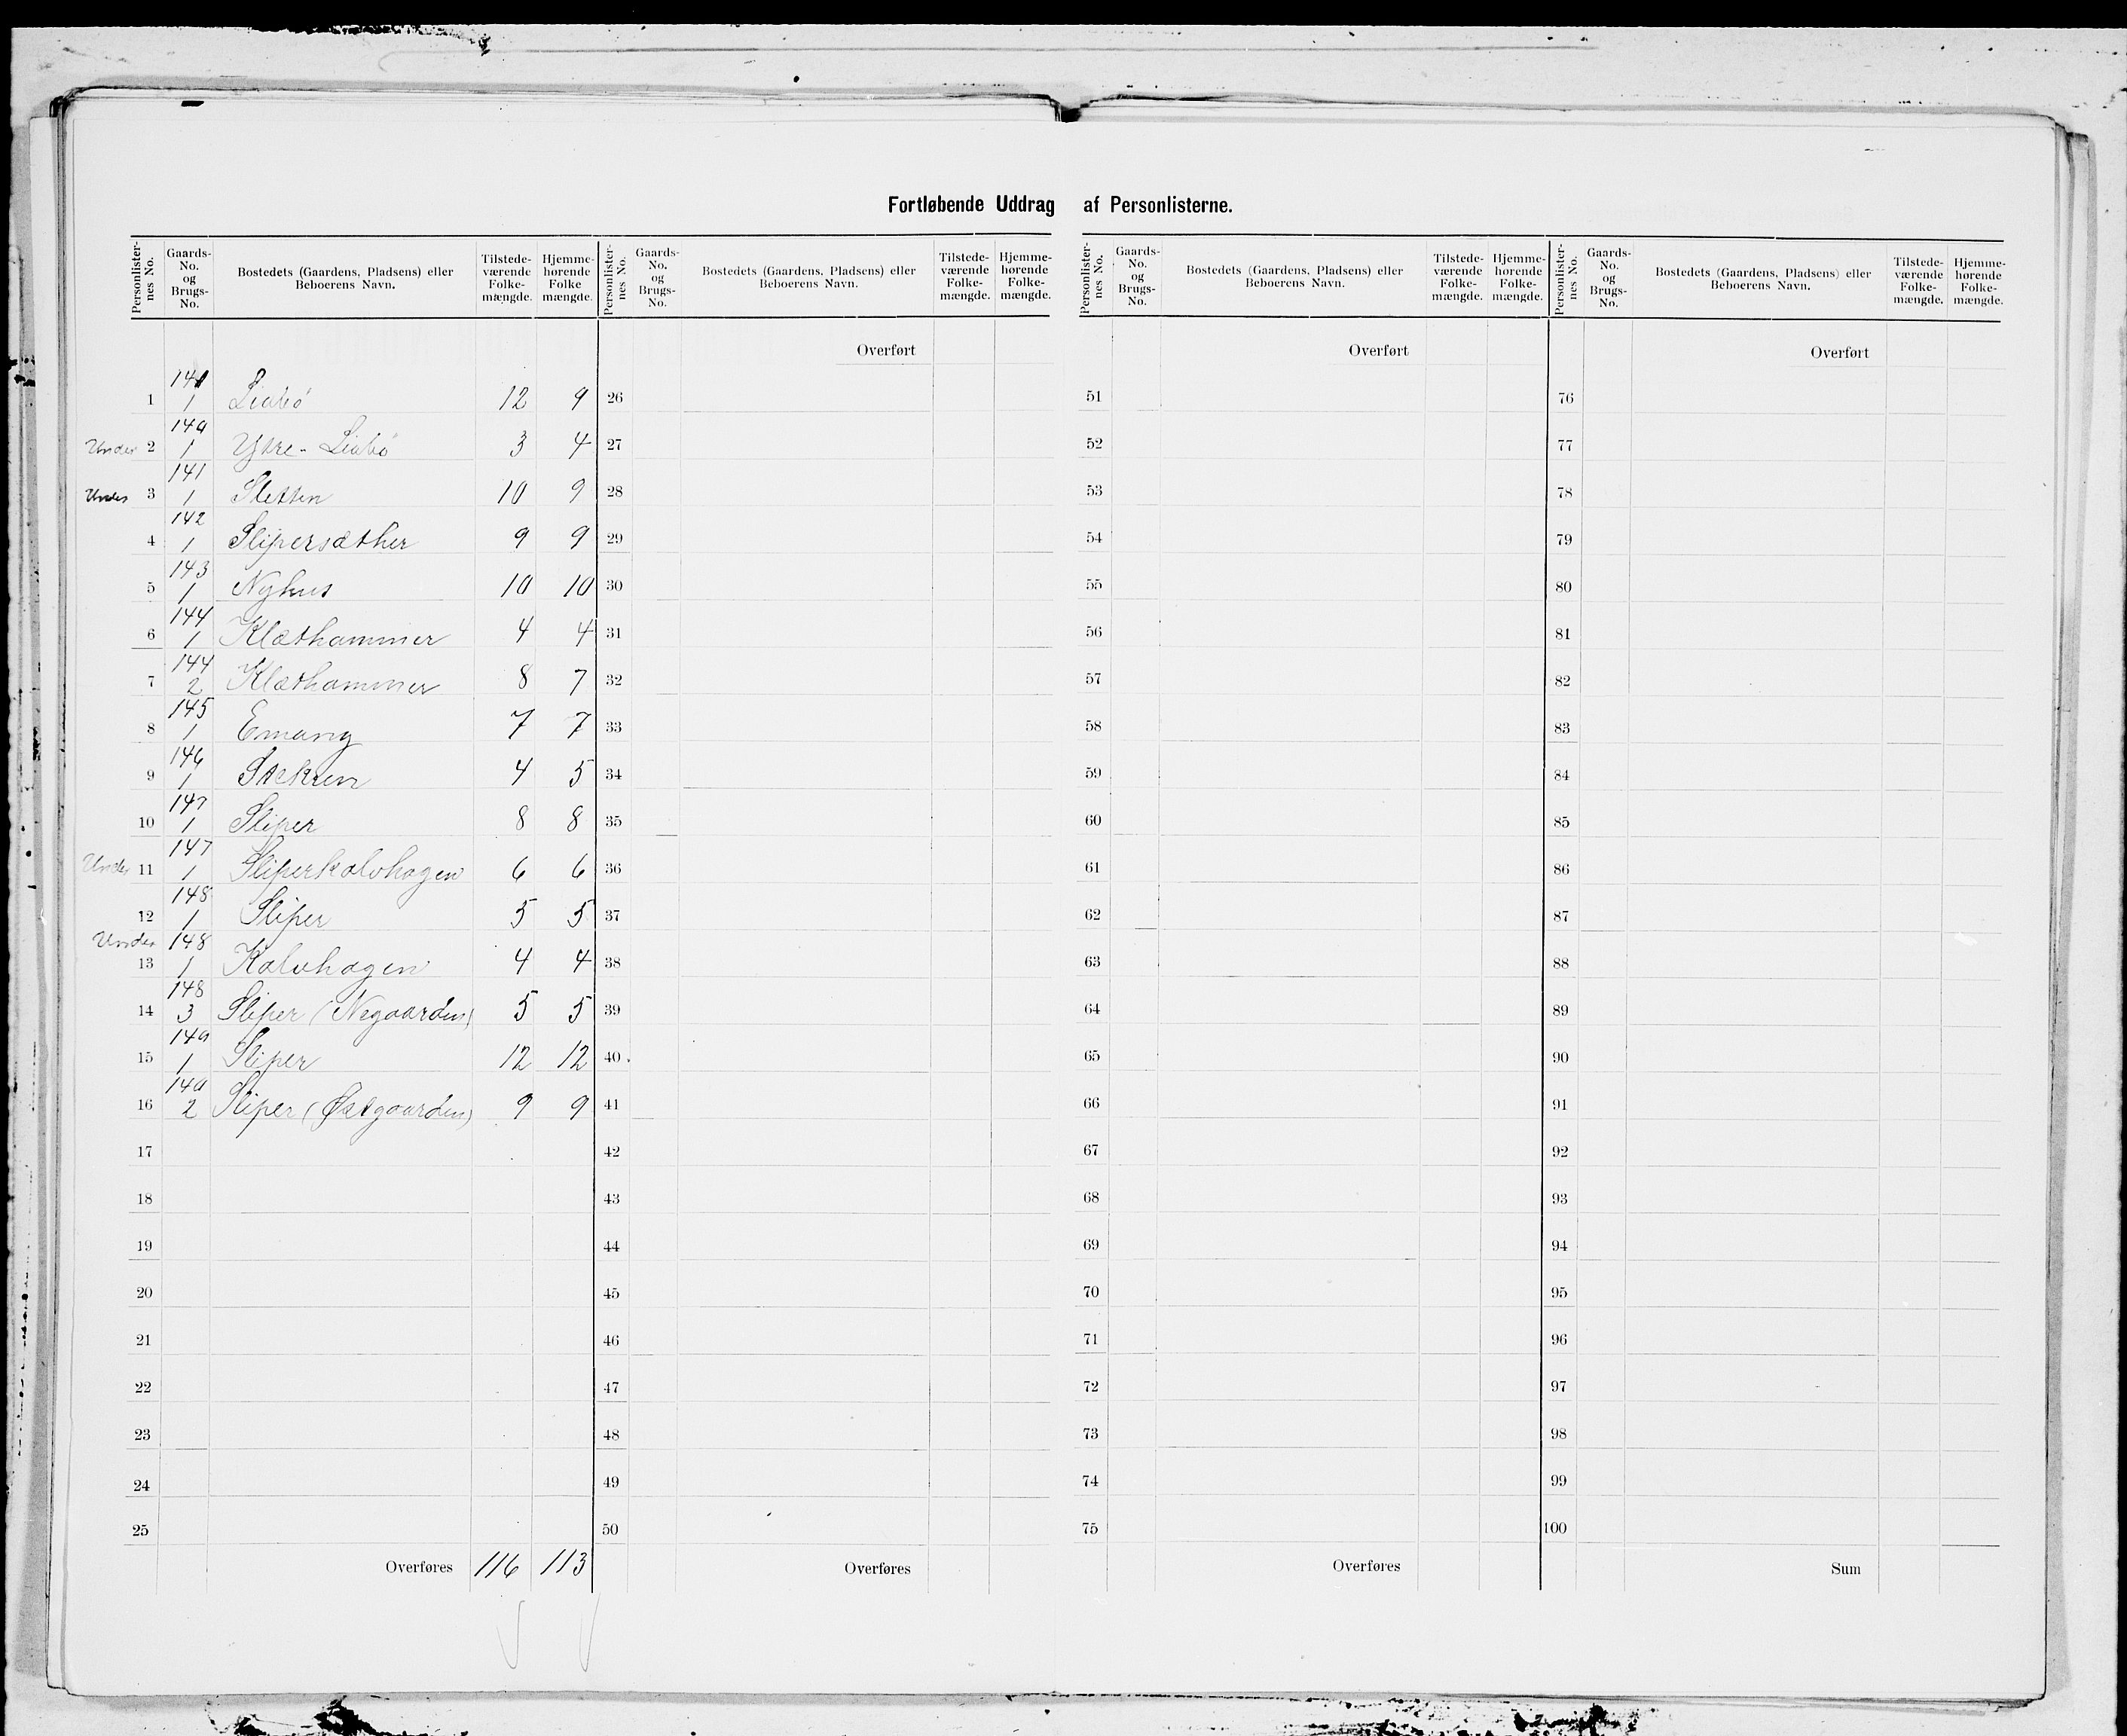 Fortløbende Uddrag af Personlisterne.
Personlister-nes No. | Gaards-No. og Brugs-No. | Bostedets (Gaardens, Pladsens) eller Beboerens Navn. | Tilstede-værende Folke-mængde. | Hjemme-hørende Folke mængde.
1 | 141 1 | Liabø | 12 | 9
Under 2 | 149 1 | Ytre-Liabø | 3 | 4
Under 3 | 141 1 | Sletten | 10 | 9
4 | 142 1 | Slipersæther | 9 | 9
5 | 143 1 | Nyhus | 10 | 10
6 | 144 1 | Klæthammer | 4 | 4
7 | 144 2 | Klæthammer | 8 | 7
8 | 145 1 | Emang | 7 | 7
9 | 146 1 | 4 | 5
10 | 147 1 | Sliper | 8 | 8
Under 11 | 147 1 | Sliperkalvhagen | 6 | 6
12 | 148 1 | Sliper | 5 | 5
Under 13 | 148 1 | Kalvhagen | 4 | 4
14 | 148 3 | Sliper (Negaarden) | 5 | 5
15 | 149 1 | Sliper | 12 | 12
16 | 149 2 | Sliper (Østgaarden) | 9 | 9
17
18
19
20
21
22
23
24
25
Overføres 116 113
Personlister-nes No. | Gaards-No. og Brugs-No. | Bostedets (Gaardens, Pladsens) eller Beboerens Navn. | Tilstede-værende Folke-mængde. | Hjemme-hørende Folke-mængde.
Overført
26
27
28
29
30
31
32
33
34
35
36
37
38
39
40
41
42
43
44
45
46
47
48
49
50
Overføres
Personlister-nes No. | Gaards-No. og Brugs-No. | Bostedets (Gaardens, Pladsens) eller Beboerens Navn. | Tilstede-værende Folke-mængde. | Hjemme-hørende Folke-mængde.
Overført
51
52
53
54
55
56
57
58
59
60
61
62
63
64
65
66
67
68
69
70
71
72
73
74
75
Overføres
Personlister-nes No. | Gaards-No. og Brugs-No. | Bostedets (Gaardens, Pladsens) eller Beboerens Navn. | Tilstede-værende Folke-mængde. | Hjemme-hørende Folke-mængde.
Overført
76
77
78
79
80
81
82
83
84
85
86
87
88
89
90
91
92
93
94
95
96
97
98
99
100
Sum